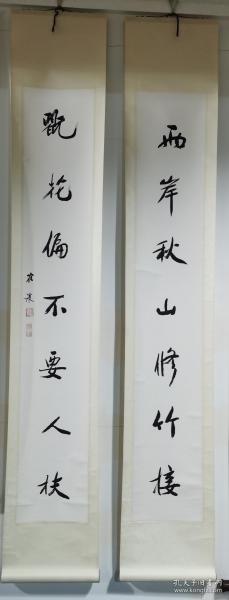 两岸秋山修竹接
翫花偏不要人扶
孔夫子旧书网